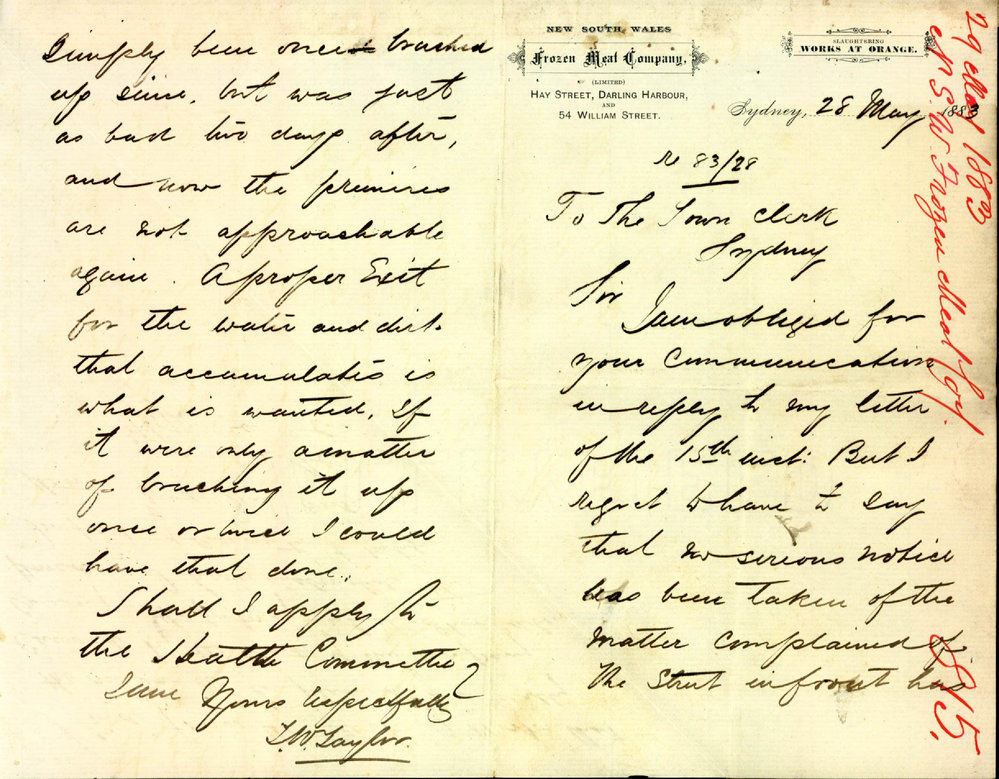 NEW SOUTH WALES
Frozen Meat Company,
(LIMITED)
HAY STREET, DARLING HARBOUR,
AND
54 WILLIAM STREET.
SLAUGHTERING
WORKS AT ORANGE.
Sydney, 28 May 1883
re 83/28
To The Town Clerk
Sydney
Sir
I am obliged for
your Communication
in reply to my letter
of the 15th inst: But I
regret to have to say
that no serious notice
has been taken of the
matter complained of
The Street in front has
simply been once brushed
up since, but was just
as bad two days after,
and now the premises
are not approachable
again. A proper Exit
for the water and dirt
that accumulates is
what is wanted. If
it were only a matter
of brushing it up
once or twice I could
have that done.
Shall I apply to
the Health Committee?
I am Yours respectfully
T.W. Taylor
29 May 1883
N.S.W Frozen Meat Coy.
815.